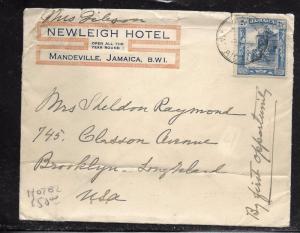 Mrs Gibson
NEWLEIGH HOTEL
OPEN ALL THE
YEAR ROUND
MANDEVILLE, JAMAICA, B.W.I.
JAMAICA
Mrs Sheldon Raymond
745. Classon Avenue
Brooklyn - Long Island
USA
By first opportunity
HOTEL